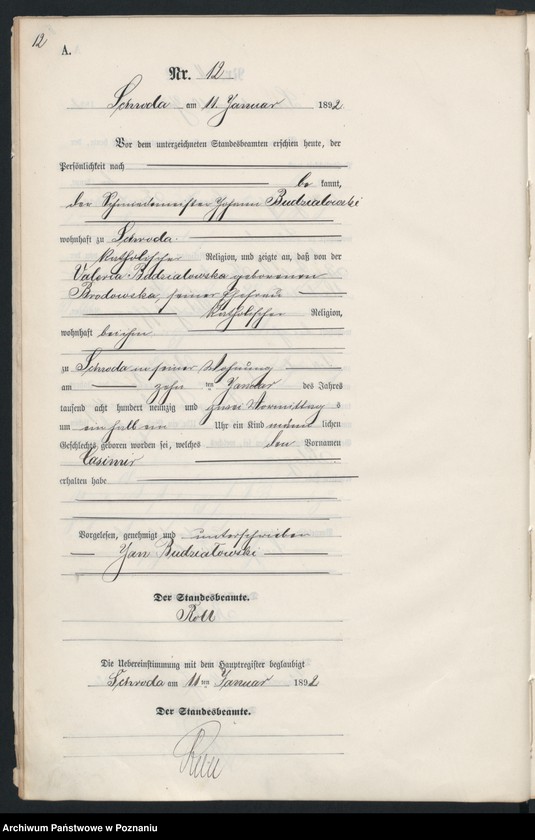 12
A.
Nr. 12
Schroda am 11. Januar 1892
Vor dem unterzeichneten Standesbeamten erschien heute, der
Persönlichkeit nach
be kannt,
der Schmiedemeister Johann Budzialowski
wohnhaft zu Schroda
katholischer Religion, und zeigte an, daß von der
Valeria Budzialowska geborenen
Brodowska, seiner Ehefrau
katholischer Religion,
wohnhaft bei ihm
zu Schroda in seiner Wohnung
am zehn ten Januar des Jahres
tausend acht hundert neunzig und zwei Vormittag s
um ein halb ein Uhr ein Kind männ lichen
Geschlechts geboren worden sei, welches den Vornamen
Casimir
erhalten habe
Vorgelesen, genehmigt und unterschrieben
Jan Budziałowski
Der Standesbeamte.
Roll
Die Uebereinstimmung mit dem Hauptregister beglaubigt
Schroda am 11 ten Januar 1892
Der Standesbeamte.
Archiwum Państwowe w Poznaniu